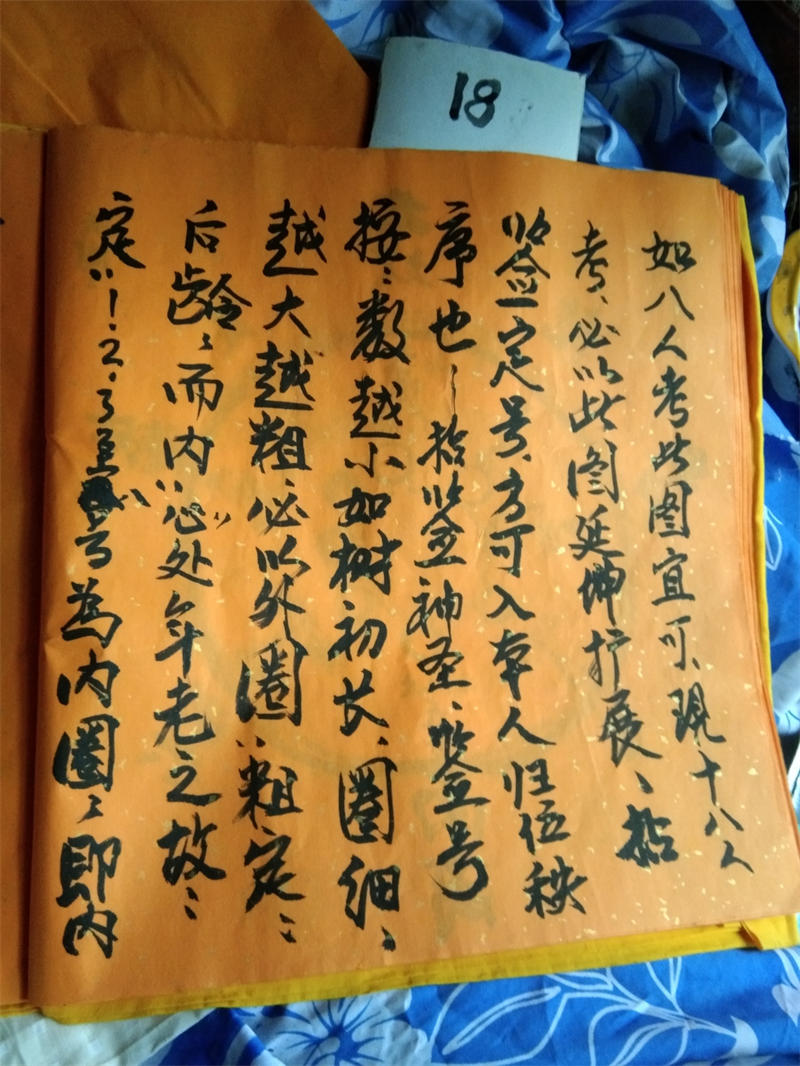 18
如八人考此图宜可、现十八人
考、必以此图延伸扩展、拈
签定号、方可入本人归位秩
序也、拈签神圣、签号
按、数越小如树初长、圈细、
越大越粗、必以外圈“粗定、
后龄、而内“心”处年老之故、
定“1.2.3号为内圈、即内